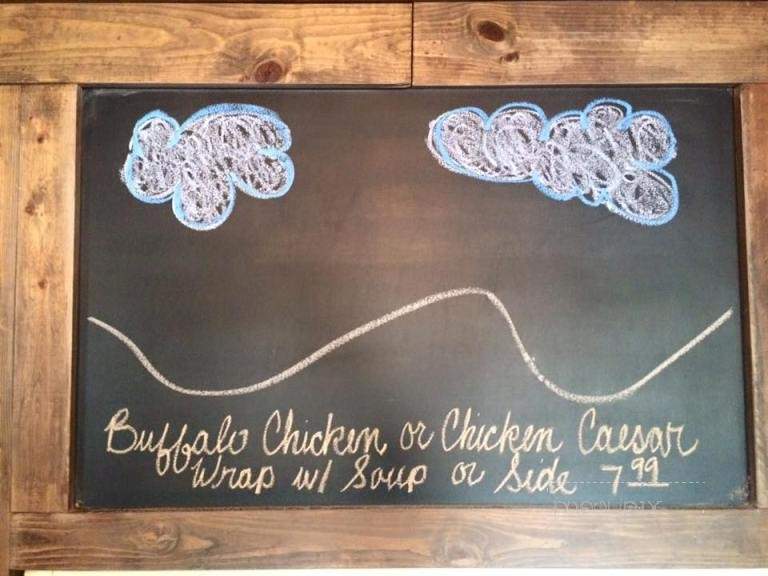 Buffalo Chicken or Chicken Caesar
Wrap w/ Soup or Side 7 99